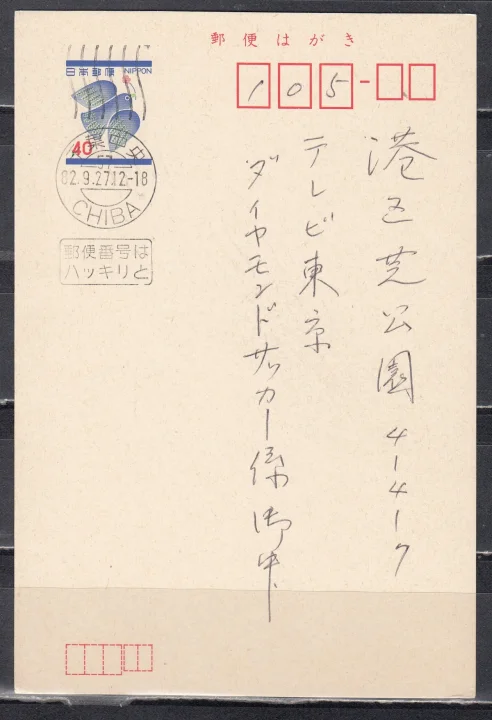 郵便はがき
日本郵便 NIPPON
40
105
千葉中央
57
82.9.27 12-18
CHIBA
郵便番号は
ハッキリと
港区芝公園4-4-7
テレビ東京
ダイヤモンドサッカー係御中